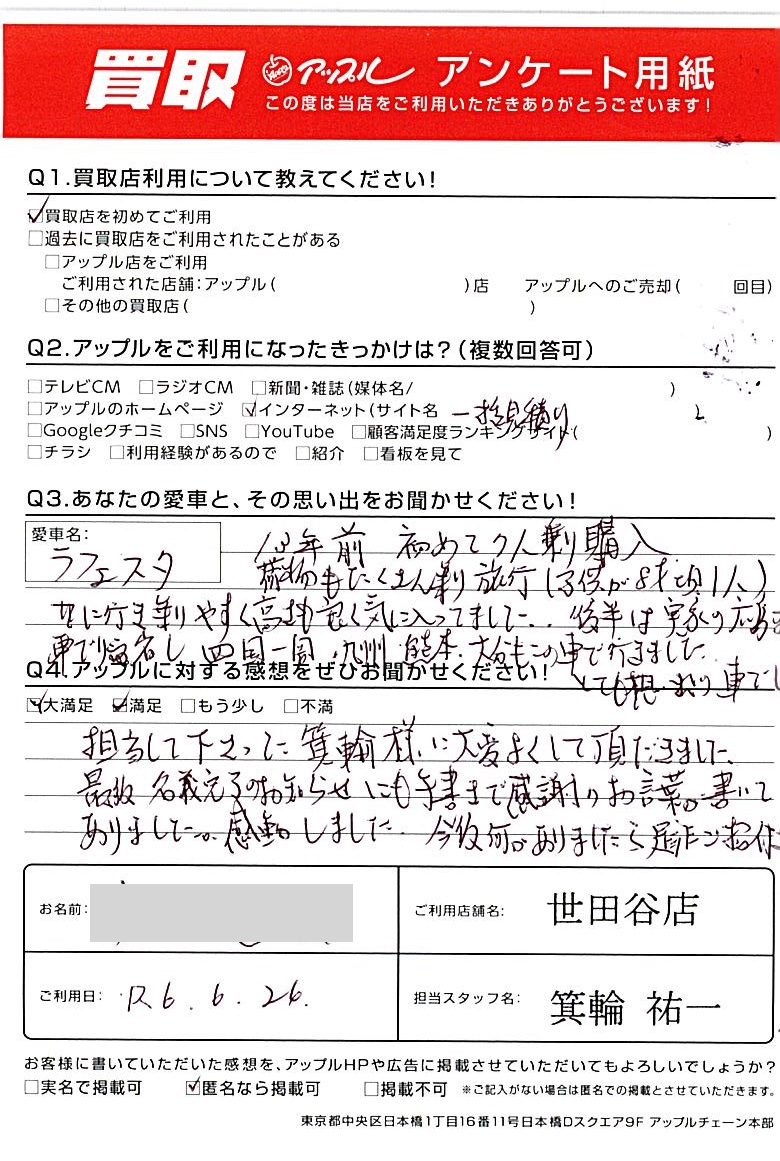 買取 アップル アンケート用紙
この度は当店をご利用いただきありがとうございます!
Q1.買取店利用について教えてください!
☑買取店を初めてご利用
□過去に買取店をご利用されたことがある
□アップル店をご利用
ご利用された店舗:アップル( )店 アップルへのご売却( 回目)
□その他の買取店( )
Q2.アップルをご利用になったきっかけは?(複数回答可)
□テレビCM □ラジオCM □新聞・雑誌(媒体名/ )
□アップルのホームページ ☑インターネット(サイト名 一括見積り
□Googleクチコミ □SNS □YouTube □顧客満足度ランキングサイト( )
□チラシ □利用経験があるので □紹介 □看板を見て
Q3.あなたの愛車と、その思い出をお聞かせください!
愛車名:
ラフェスタ
13年前 初めて7人乗購入
荷物もたくさん乗り 旅行(子供が8才頃1人)
に行き乗りやすく高速も良く気に入ってました.. 後半は実家の
車で帰省し 四国一周、九州 熊本、大分もこの車で行きました
とても想い 車でし
Q4.アップルに対する感想をぜひお聞かせください!
☑大満足 ☑満足 □もう少し □不満
担当して下さった 箕輪様に大変よくして頂だきました、
最後 名義完了のお知らせにも手書きで感謝のお言葉が書いて
ありました。感動しました. 今後何かありましたら是非
お名前:
ご利用店舗名: 世田谷店
ご利用日: R6. 6. 26.
担当スタッフ名: 箕輪 祐一
お客様に書いていただいた感想を、アップルHPや広告に掲載させていただいてもよろしいでしょうか?
□実名で掲載可 ☑匿名なら掲載可 □掲載不可 ※ご記入がない場合は匿名での掲載とさせていただきます。
東京都中央区日本橋1丁目16番11号日本橋Dスクエア9F アップルチェーン本部